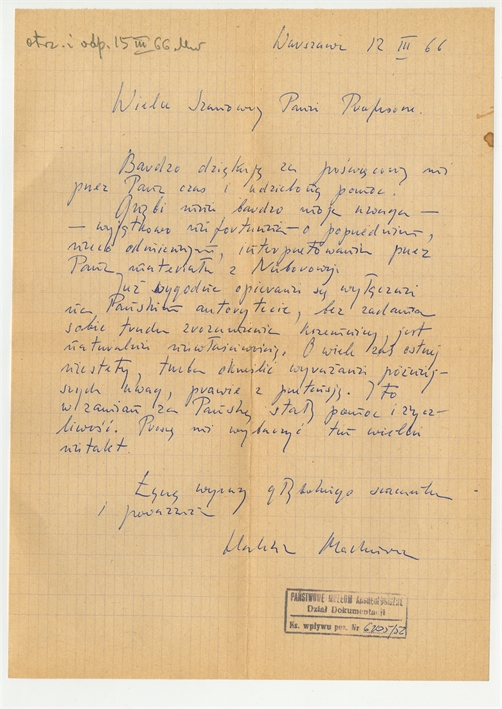 otrz. i odp. 15 III 66
Warszawa 12 III 66
Wielce Szanowny Panie Profesorze.
Bardzo dziękuję za poświęcony mi
przez Pana czas i udzieloną pomoc.
Gnębi mnie bardzo moja uwaga –
– wyjątkowo niefortunna – o poprzednim,
nieco odmiennym, interpretowaniu przez
Pana materiału z
Już wygodne opieranie się wyłącznie
na Pańskim autorytecie, bez zadania
sobie trudu zrozumienia jest
naturalnie niewłaściwością. O wiele zaś ostrzej
niestety, trzeba określić wyrażanie
uwag, prawie z pretensją. I to
w zamian za Pańską stałą pomoc i życz-
liwość. Proszę mi wybaczyć ten wielki
nietakt.
Łączę wyrazy głębokiego szacunku
i poważania
PAŃSTWOWE MUZEUM ARCHEOLOGICZNE
Dział Dokumentacji
Ks. wpływu poz. Nr 6205/52